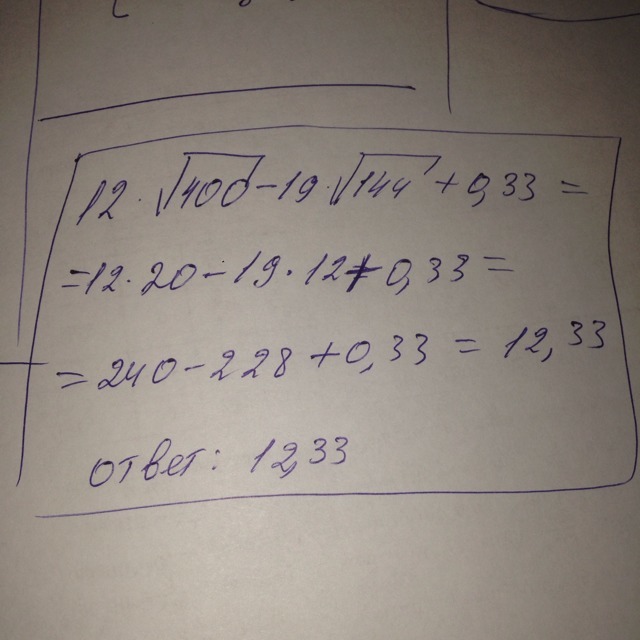 12 · √400 - 19 · √144 + 0,33 =
= 12 · 20 - 19 · 12 + 0,33 =
= 240 - 228 + 0,33 = 12,33
ответ: 12,33